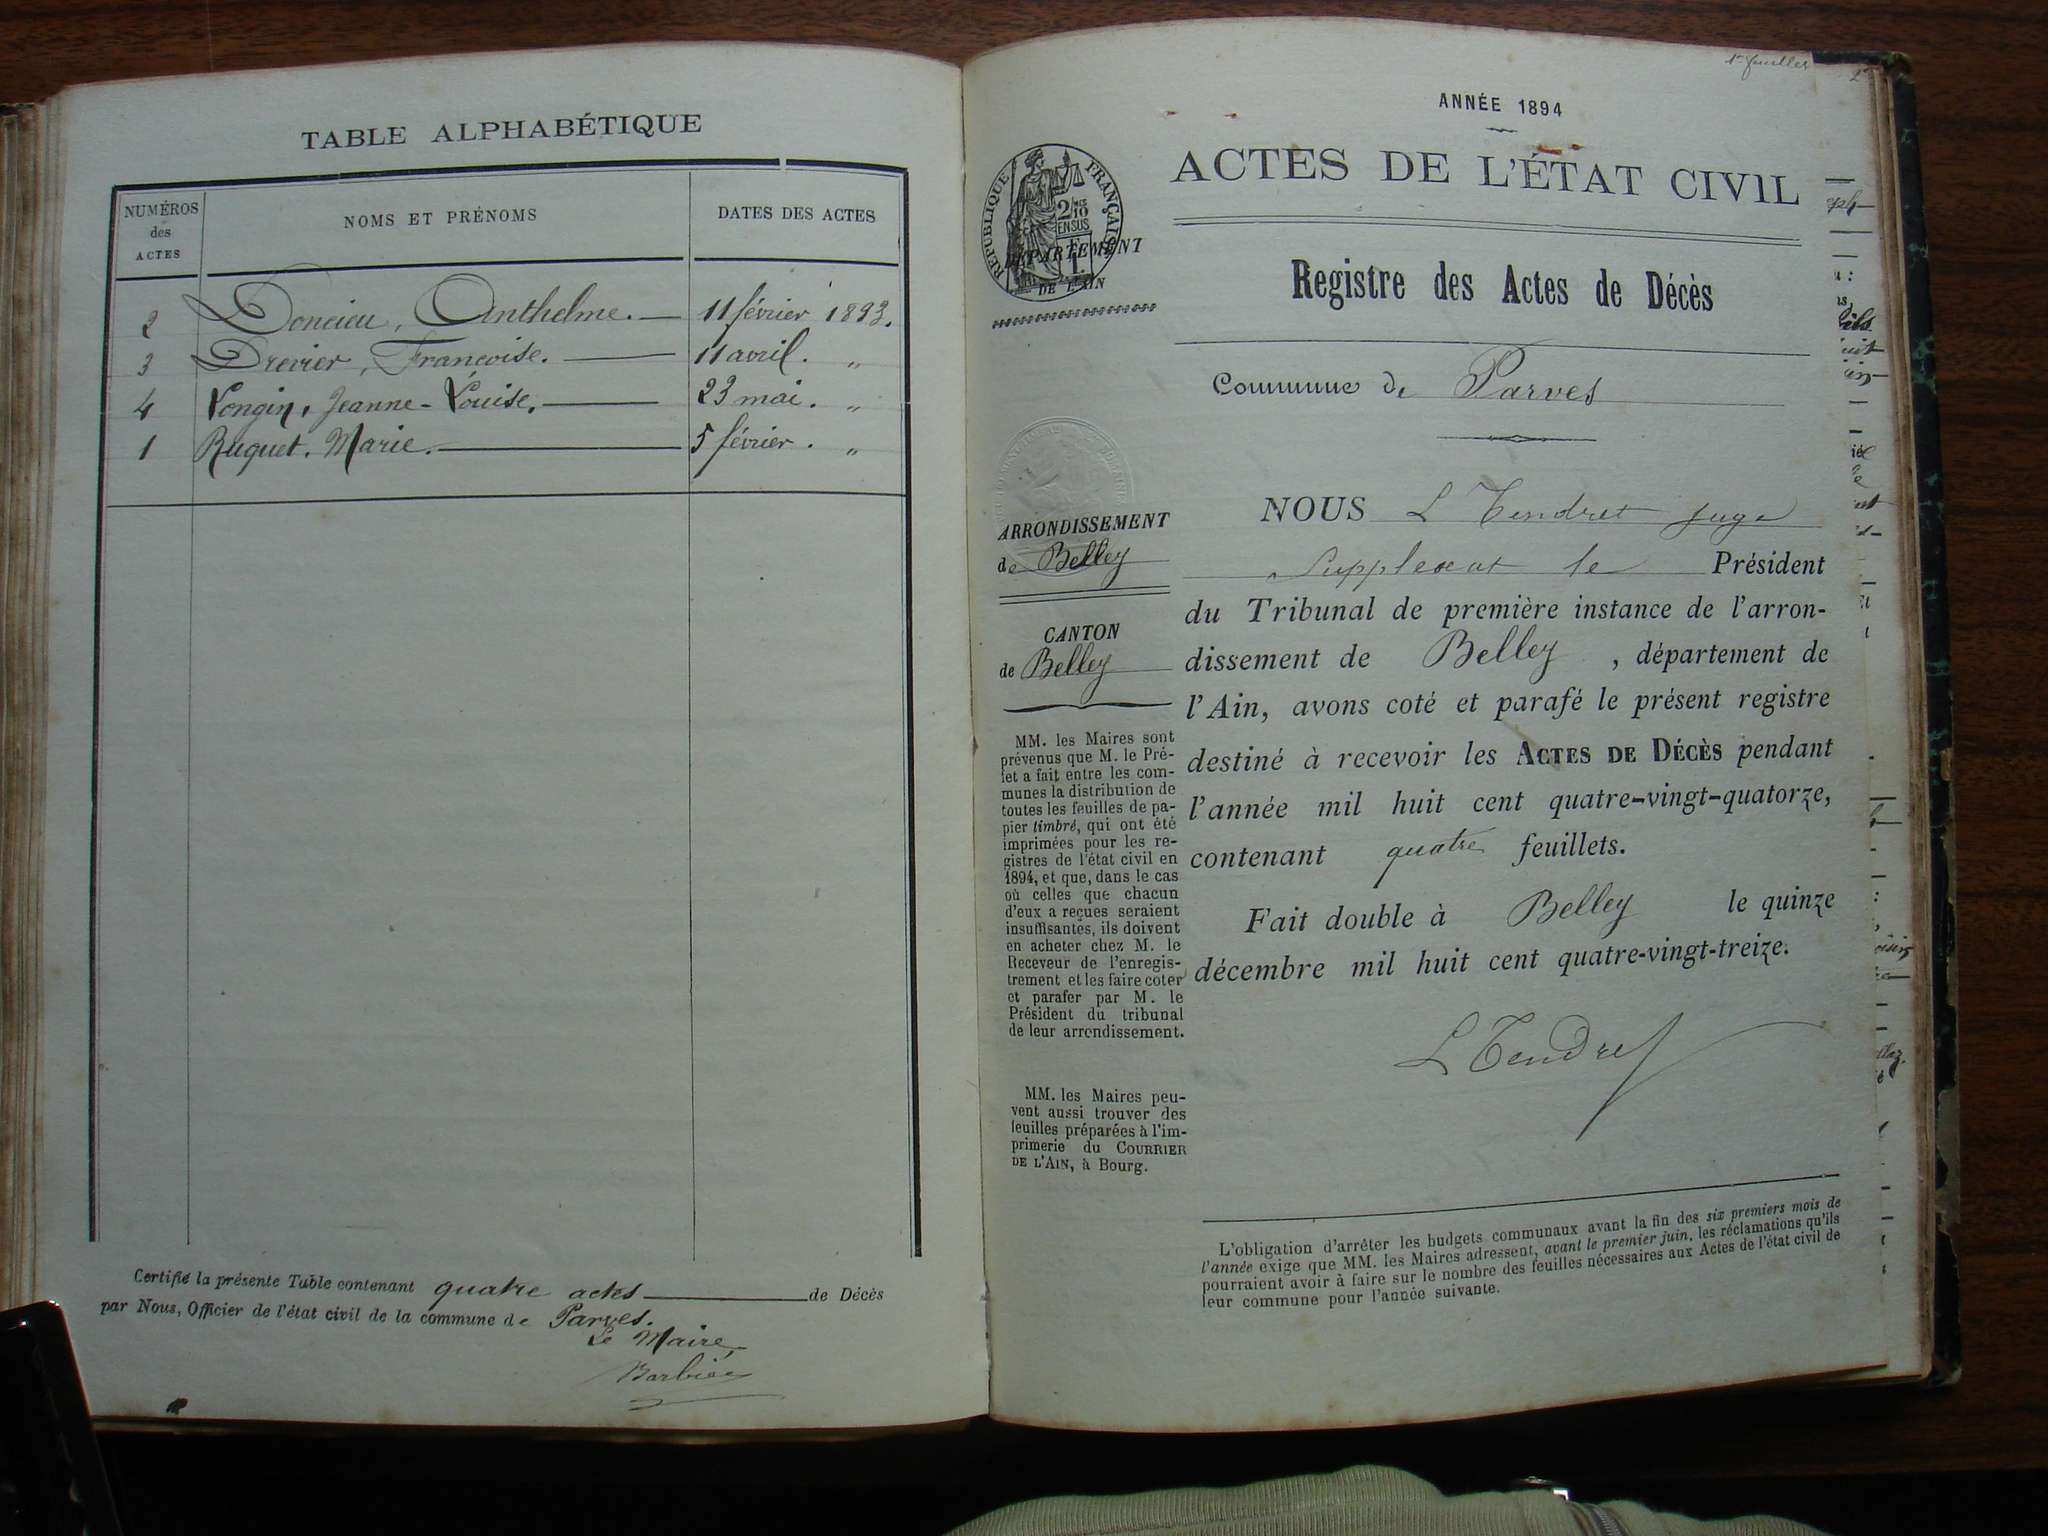 TABLE ALPHABÉTIQUE
NUMÉROS
des
ACTES
NOMS ET PRÉNOMS
DATES DES ACTES
2 Doncieu, Anthelme. 11 février 1893.
3 Drevier, Françoise. 11 avril. "
4 Longin, Jeanne-Louise. 23 mai. "
1 Ruquet. Marie. 5 février. "
Certifié la présente Table contenant quatre actes de Décès
par Nous, Officier de l'état civil de la commune de Parves.
Le Maire,
1er feuillet
ANNÉE 1894
ACTES DE L'ÉTAT CIVIL
RÉPUBLIQUE FRANÇAISE
2/10
EN SUS
DÉPARTEMENT
DE L'AIN
Registre des Actes de Décès
Commune de Parves
ARRONDISSEMENT
de Belley
CANTON
de Belley
MM. les Maires sont
prévenus que M. le Pré-
fet a fait entre les com-
munes la distribution de
toutes les feuilles de pa-
pier timbré, qui ont été
imprimées pour les re-
gistres de l'état civil en
1894, et que, dans le cas
où celles que chacun
d'eux a reçues seraient
insuffisantes, ils doivent
en acheter chez M. le
Receveur de l'enregis-
trement et les faire coter
et parafer par M. le
Président du tribunal
de leur arrondissement.
MM. les Maires peu-
vent aussi trouver des
feuilles préparées à l'im-
primerie du COURRIER
DE L'AIN, à Bourg.
NOUS L Tendret juge
suppléant le Président
du Tribunal de première instance de l'arron-
dissement de Belley, département de
l'Ain, avons coté et parafé le présent registre
destiné à recevoir les ACTES DE DÉCÈS pendant
l'année mil huit cent quatre-vingt-quatorze,
contenant quatre feuillets.
Fait double à Belley le quinze
décembre mil huit cent quatre-vingt-treize.
L Tendret
L'obligation d'arrêter les budgets communaux avant la fin des six premiers mois de
l'année exige que MM. les Maires adressent, avant le premier juin, les réclamations qu'ils
pourraient avoir à faire sur le nombre des feuilles nécessaires aux Actes de l'état civil de
leur commune pour l'année suivante.